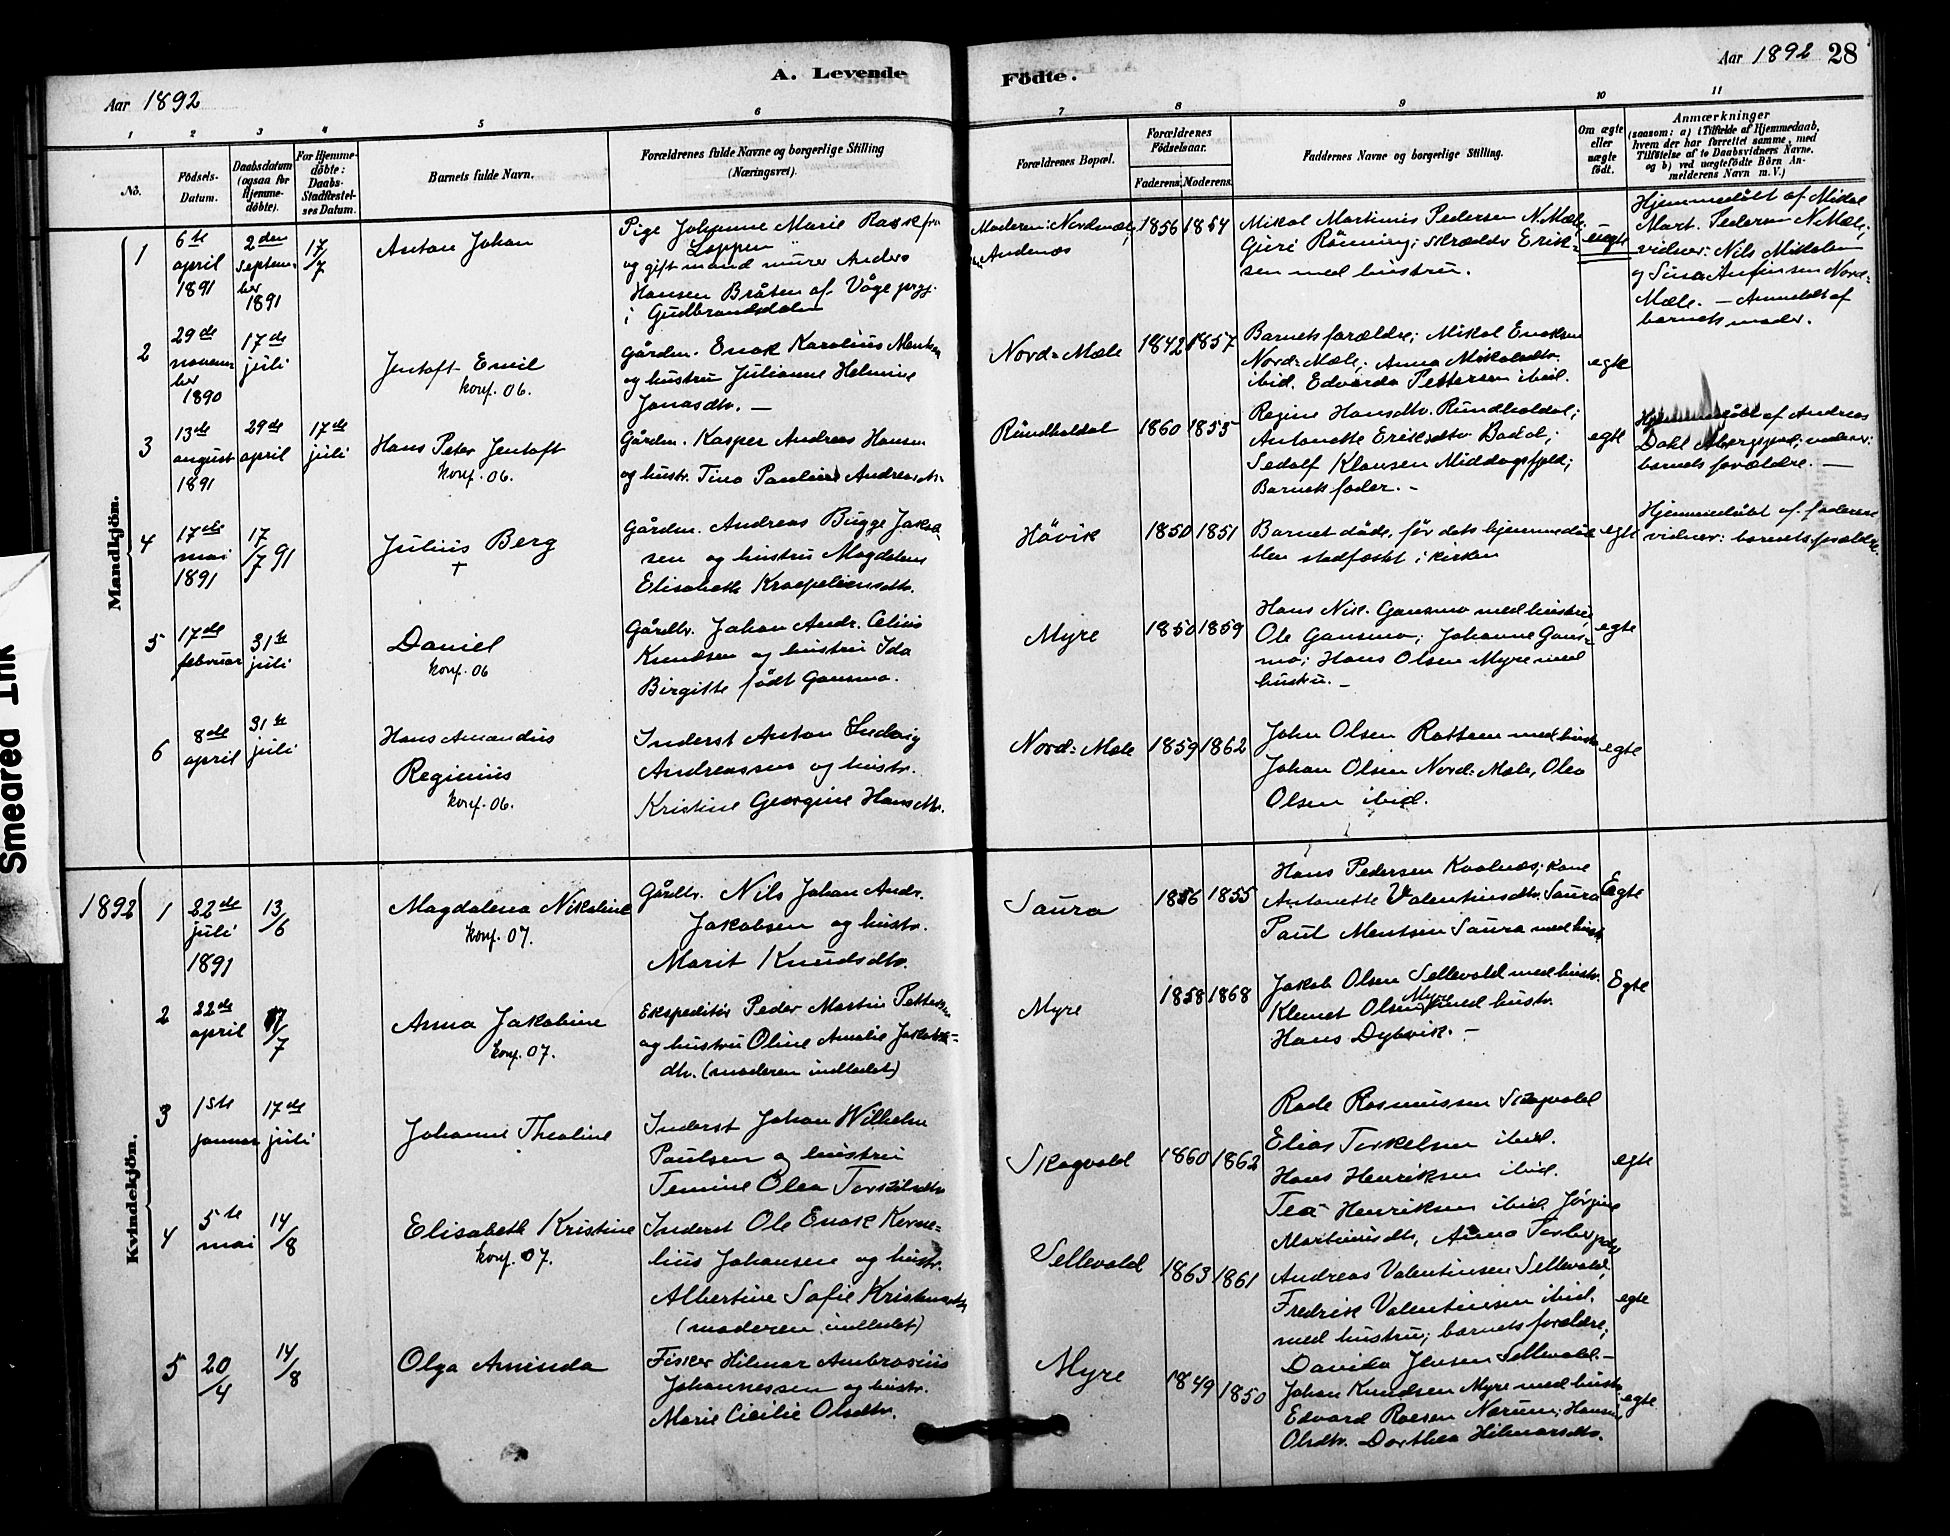 A. Levende
Fødte.
Aar 1892
Aar 1892 28
1 2 3 4 5 6 7 8 9 10 11
Nō.
Födsels-
Datum.
Daabsdatum
(ogsaa for
Hjemme-
döbte).
For Hjemme-
döbte:
Daabs-
Stadfæstel-
ses Datum.
Barnets fulde Navn.
Forældrenes fulde Navne og borgerlige Stilling
(Næringsvei).
Forældrenes Bopæl.
Forældrenes
Födselsaar.
Faderens.
Moderens.
Faddernes Navne og borgerlige Stilling.
Om ægte
eller
uægte
født.
Anmærkninger
(saasom: a) i Tilfælde af Hjemmedaab,
hvem der har forrettet samme, med
Tilføielse af to Daabsvidners Navne,
og b) ved uægtefödte Börn An-
melderens Navn m. V.)
Mandkjön.
1
6te
april
1891
2den
septem-
ber
1891
17/7
Anton Johan
Pige Johanne Marie Rask fra
Loppen
og gift mand murer Anders
Hansen Bråten af Våge prgj.
i Gudbrandsdalen
Moderen: Nordmæle,
Andenæs
1856 1854
Mikal Martinus Pedersen N.Mæle;
Guri Rönning; skrædder Erik-
sen med hustru.
uegte
Hjemmedøbt af Mikal
Mart. Pedersen N.Mæle;
vidner: Nils Mikalsen
og Sina Anfinsen Nord-
Mæle. — Anmeldt af
barnets moder.
2
29de
novem-
ber
1890
17de
juli
Jentoft Emil
konf. 06.
Gårdm. Enok Karolius Mentsen
og hustru Julianne Helmine
Jonasdtr. —
Nord-Mæle
1842 1857
Barnets forældre; Mikal Enoksen
Nord-Mæle; Anna Mikalsdtr.
ibid. Edvarda Pettersen ibid.
egte
3
13de
august
1891
29de
april
17de
juli
Hans Peter Jentoft
konf. 06.
Gårdm. Kasper Andreas Hansen
og hustr. Tina Pauline Andreasdtr.
Rundholdal
1860 1855
Regine Hansdtr. Rundholdal;
Antonette Eriksdtr
Sedolf Klausen Middagsfjeld;
Barnets fader. -
egte
Hjemmedøbt af Andreas
Dahl vidner:
barnets forældre. —
4
17de
mai
1891
17/7 91
Julius Berg
+
Gårdm. Andreas Bugge Jakob-
sen og hustru Magdalena
Elisabeth Kraepeliensdtr.
Høvik
1850 1851
Barnet døde, før dets hjemmedåb
blev stadfæstet i kirken
egte
Hjemmedøbt af faderen
vidner: barnets forældre.
5
17de
februar
31te
juli
Daniel
konf. 06
Gårdbr. Johan Andr. Celius
Knudsen og hustru Ida
Birgitte født Gansmo.
Myre
1850 1859
Hans Nik. Gansmo med hustru,
Ole Gansmo; Johanne Gans-
mo; Hans Olsen Myre med
hustru. -
egte
6
8de
april
31te
juli
Hans Amandus
Reginius
konf. 06.
Inderst Anton Ludvig
Andreassen og hustr.
Kristine Georgine Hansdtr.
Nord-Mæle
1859 1862
John Olsen med hustr
Johan Olsen Nord-Mæle, Olea
Olsen ibid.
egte
1892
Kvindekjön.
1
22de
juli
1891
13/6
Magdalena Nikoline
konf. 07.
Gårdbr. Nils Johan Andr.
Jakobsen og hustr.
Marit Knudsdtr.
Saura
1856 1855
Hans Pedersen Kvalnæs; kone
Antonette Valentinsdtr. Saura
Paul Mentsen Saura med hustr
Egte
2
22de
april
17/7
Anna Jakobine
konf. 07.
Ekspeditør Peder Martin Pettersen
og hustru Oline Amalie Jakobs-
dtr. (moderen indledet)
Myre
1858 1868
Jakob Olsen Sellevold med hustr.
Klemet Olsen Myre med hustr.
Hans Dybvik. -
Egte
3
1ste
januar
17de
juli
Johanne Thealine
Inderst Johan Wilhelm
Paulsen og hustru
Temine Olea Torkilsdtr.
Skogvold
1860 1862
Rade Rasmussen Skogvold
Elias Torkelsen ibid.
Hans Henriksen ibid.
Tea Henriksen ibid. Jørgine
Martinusdtr, Anna Torbergsdtr
egte
4
5te
mai
14/8
Elisabeth Kristine
konf. 07.
Inderst Ole Enok Korne-
lius Johansen og hustr.
Albertine Sofie Kristensdtr
(moderen indledet)
Sellevold
1863 1861
Andreas Valentinsen Sellevold,
Fredrik Valentinsen ibid.
med hustru; barnets forældre;
Davida Jensen Sellevold.-
egte
5
20/4
14/8
Olga Aminda
Fisker Hilmar Ambrosius
Johannessen og hustr.
Marie Cicilie Olsdtr.
Myre
1849 1850
Johan Knudsen Myre med hustr
Edvard Roesen Nærum; Hansine
Olsdtr. Dorthea Hilmarsdtr.
egte
Smeared Ink